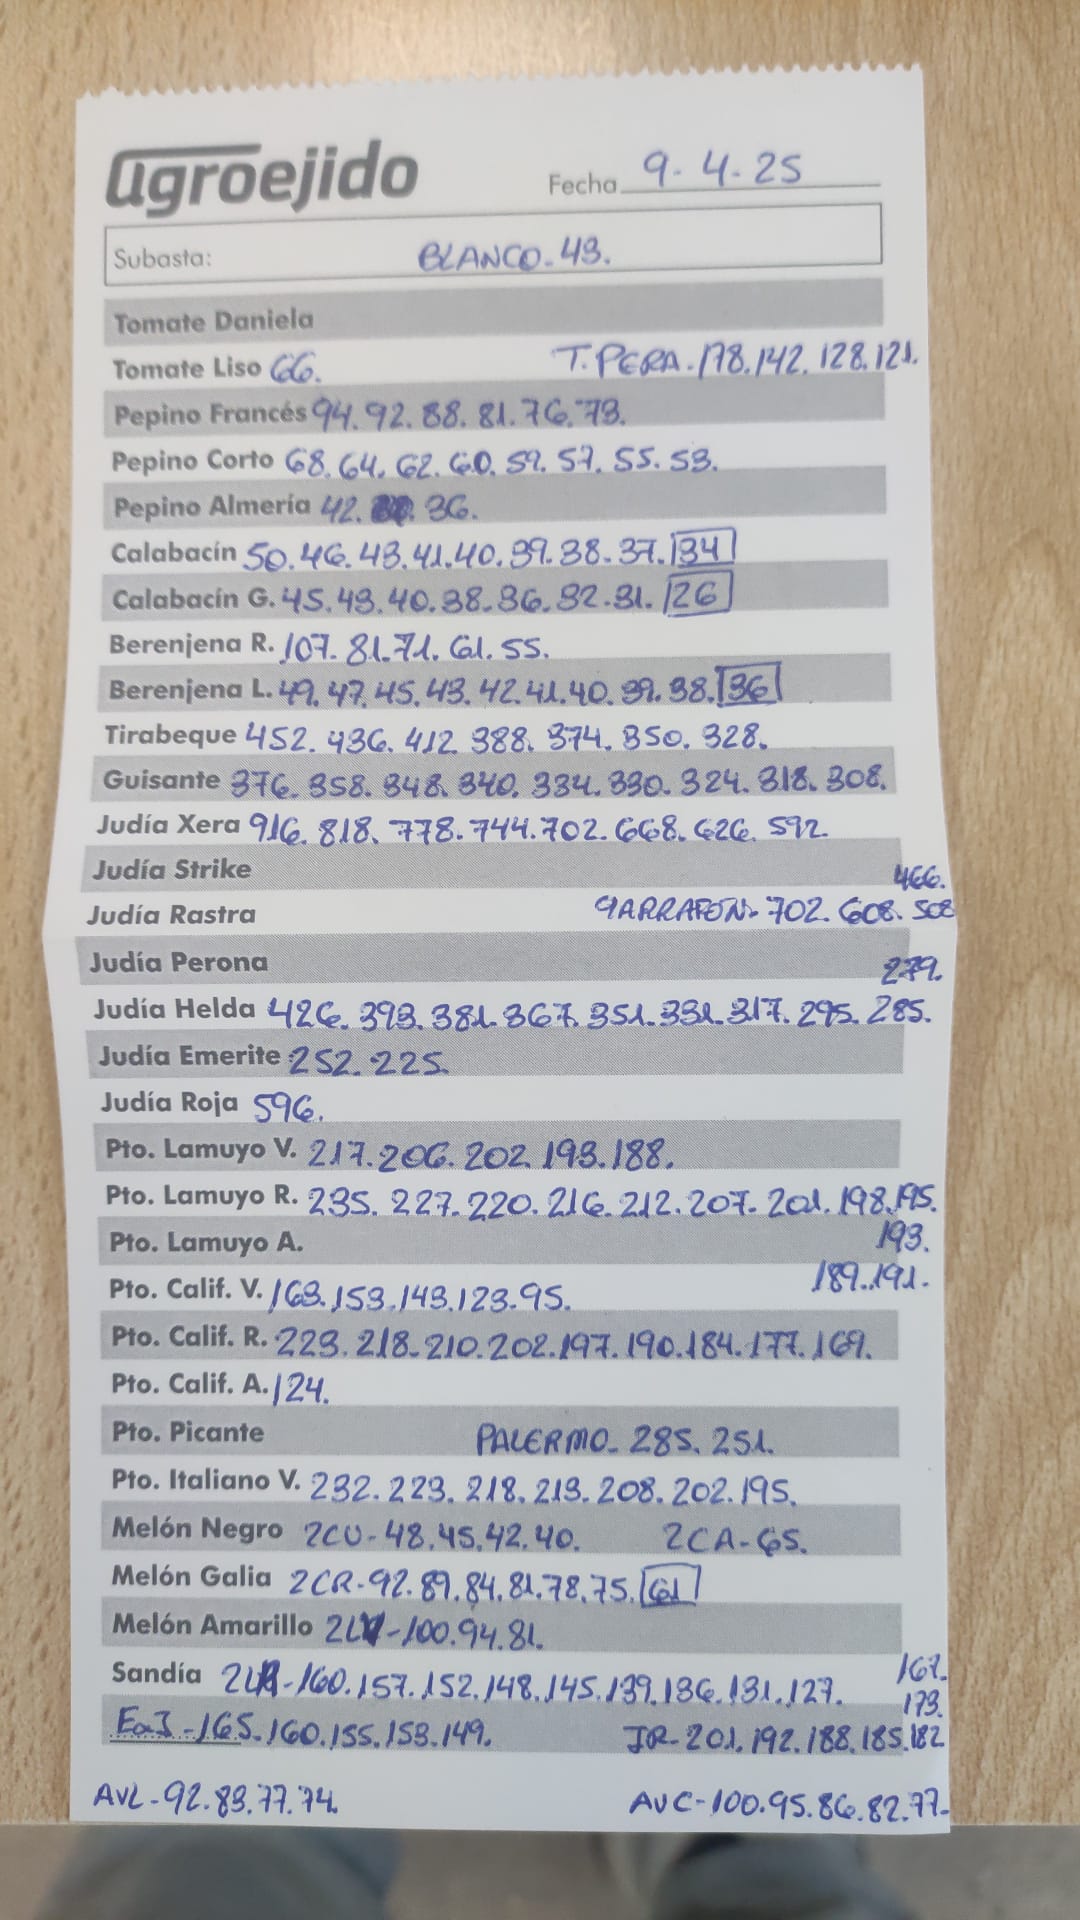 agroejido
Fecha 9-4-25
Subasta: BLANCO-43.
Tomate Daniela
Tomate Liso 66. T. PERA-178.142.128.121.
Pepino Francés 94.92.88.81.76.73.
Pepino Corto 68.64.62.60.59.57.55.53.
Pepino Almería 42. 36.
Calabacín 50.46.43.41.40.39.38.37. 34
Calabacín G. 45.43.40.38.36.32.31. 26
Berenjena R. 107.81.71.61.55.
Berenjena L. 49.47.45.43.42.41.40.39.38. 36
Tirabeque 452.436.412.388.374.350.328.
Guisante 376.358.348.340.334.330.324.318.308.
Judía Xera 916.818.778.744.702.668.626.592.
Judía Strike 466.
Judía Rastra GARRAFON-702.608.508
Judía Perona 279.
Judía Helda 426.393.381.367.351.331.317.295.285.
Judía Emerite 252.225.
Judía Roja 596.
Pto. Lamuyo V. 217.206.202.193.188.
Pto. Lamuyo R. 235.227.220.216.212.207.201.198.195.
Pto. Lamuyo A. 193.
189.191.
Pto. Calif. V. 163.153.143.123.95.
Pto. Calif. R. 223.218.210.202.197.190.184.177.169.
Pto. Calif. A. 124.
Pto. Picante PALERMO-285.251.
Pto. Italiano V. 232.223.218.213.208.202.195.
Melón Negro 2CU-48.45.42.40. 2CA-65.
Melón Galia 2CR-92.89.84.81.78.75. 61
Melón Amarillo -100.94.81.
Sandía -160.157.152.148.145.139.136.131.127. 167.
173.
-165.160.155.153.149. JR-201.192.188.185.182
AVL-92.83.77.74. AVC-100.95.86.82.77-